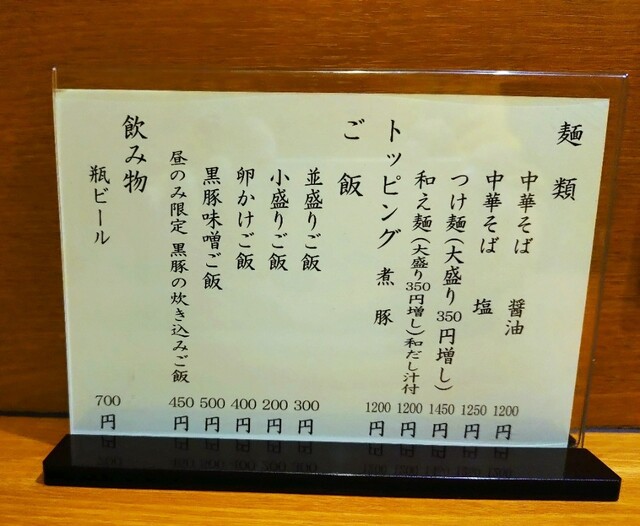 麺類
中華そば 醤油 1200円
中華そば 塩 1250円
つけ麺(大盛り350円増し) 1450円
和え麺(大盛り350円増し)和だし汁付 1200円
トッピング 煮豚 1200円
ご飯
並盛りご飯 300円
小盛りご飯 200円
卵かけご飯 400円
黒豚味噌ご飯 500円
昼のみ限定 黒豚の炊き込みご飯 450円
飲み物
瓶ビール 700円